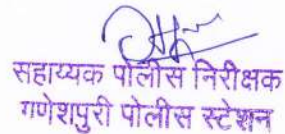 सहाय्यक पोलीस निरीक्षक
गणेशपुरी पोलीस स्टेशन